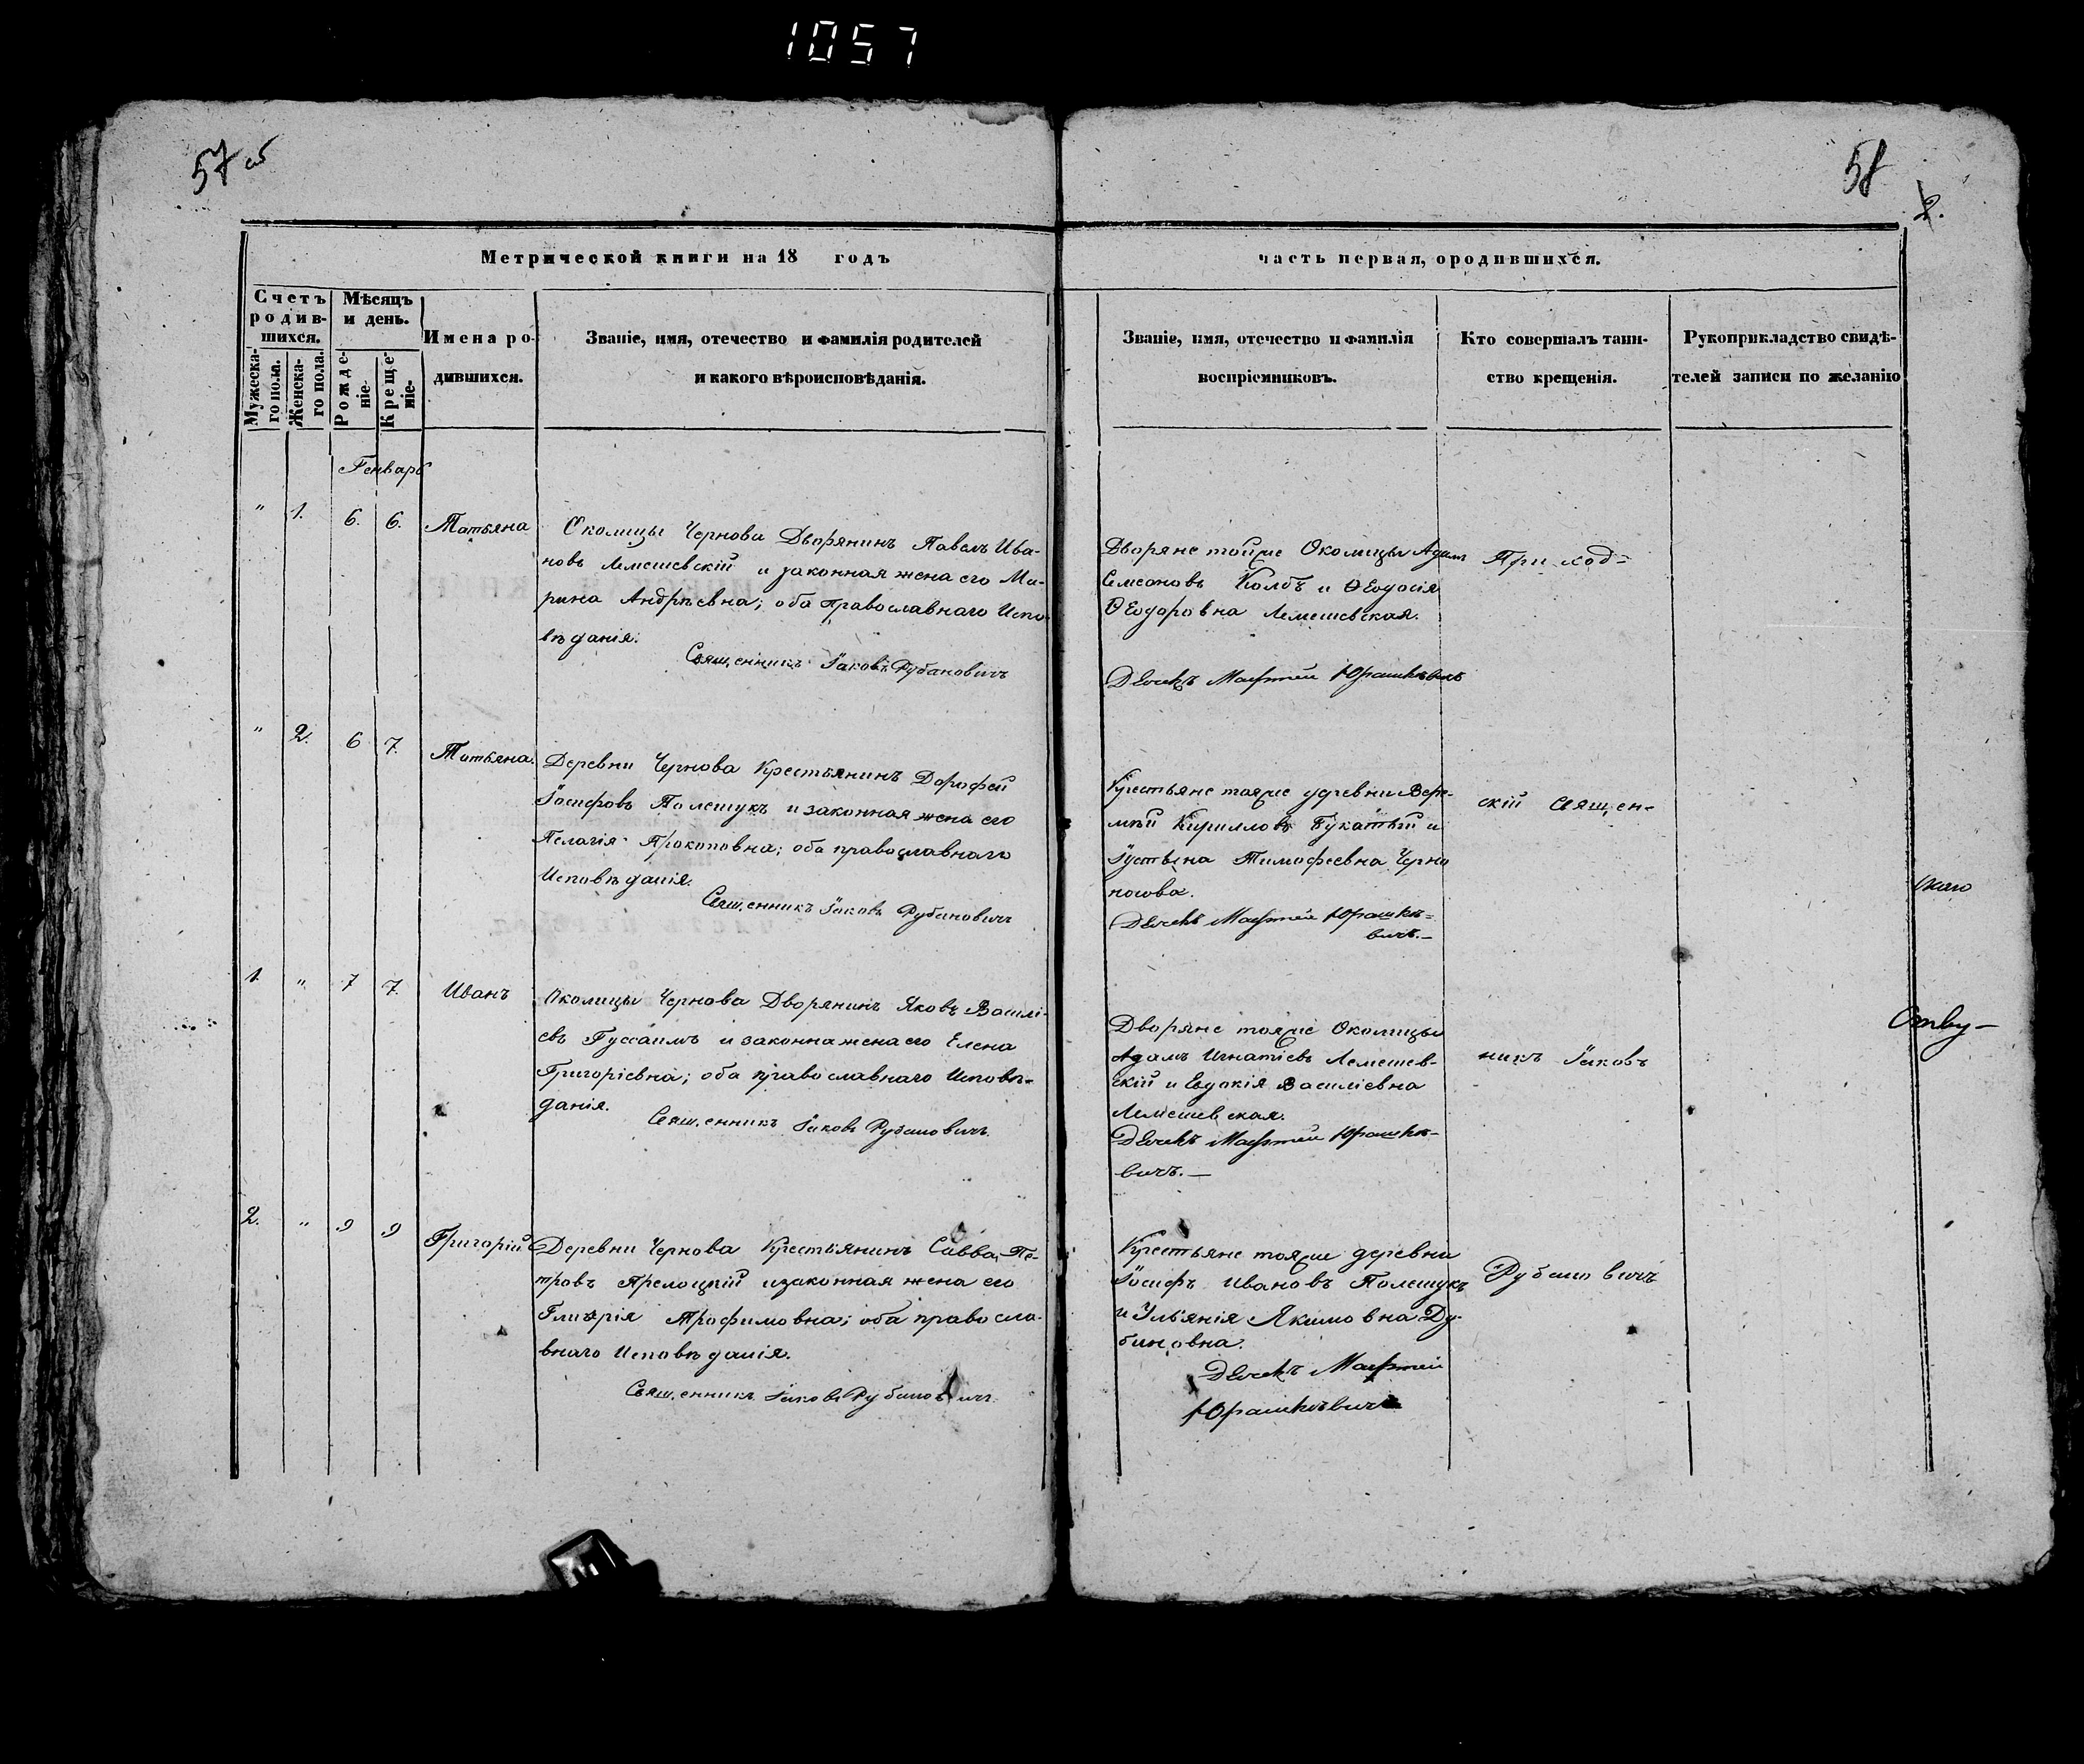 1057
57 об
58
2.
Метрической книги на 18 годъ
часть первая, ородившихся.
Счетъ
родив-
шихся.
Мужеска-
го пола.
Женска-
го пола.
Мѣсяцъ
и день.
Рожде-
ніе.
Креще-
ніе.
Имена ро-
дившихся.
Званіе, имя, отечество и фамилія родителей
и какого вѣроисповѣданія.
Званіе, имя, отечество и фамилія
воспріемниковъ.
Кто совершалъ таин-
ство крещенія.
Рукоприкладство свидѣ-
телей записи по желанію
Генварь
" 1. 6. 6. Татьяна
Околицы Чернова Дворянинъ Павелъ Ива-
новъ Лемешевскій и законная жена его Ма-
рина Андрѣевна; оба православнаго Испо-
вѣданія.
Священникъ Іаковъ Рубановичъ
Дворяне тойже Околицы Адамъ
Семеоновъ Колбъ и Ѳеодосія
Ѳеодоровна Лемешевская.
Дьячекъ Матѳей Юрашкевичъ
Приход-
" 2. 6 7. Татьяна.
Деревни Чернова Крестьянинъ Дорофей
Іосифовъ Полешукъ и законная жена его
Пелагія Прокоповна; оба православнаго
Исповѣданія.
Священникъ Іаковъ Рубановичъ
Крестьяне тояже деревни Вере-
мѣй Кирилловъ и
Іустина Тимофеевна Черно
носова.
Дьячекъ Матѳей Юрашке-
вичъ.-
скій священ-
1. " 7 7. Иванъ
Околицы Чернова Дворянинъ Яковъ Василі-
евъ и законна жена его Елена
Григоріевна; оба православнаго Исповѣ-
данія.
Священникъ Іаковъ Рубановичъ.
Дворяне тояже Околицы
Адамъ Игнатіевъ Лемешев-
скій и Евдокія Василіевна
Лемешевская.
Дьячекъ Матѳей Юрашке-
вичъ.-
никъ Іаковъ
2. " 9 9 Григорій
Деревни Чернова Крестьянинъ Савва Пе-
тровъ и законная жена его
Гликерія Трофимовна; оба православ-
внаго Исповѣданія.
Священникъ Іаковъ Рубановичъ.
Крестьяне тояже деревни
Іосифъ Ивановъ Полешукъ
и Ульянія Якимовна Ду-
биновна.
Дьячекъ Матѳей
Юрашкевичъ
Рубановичъ